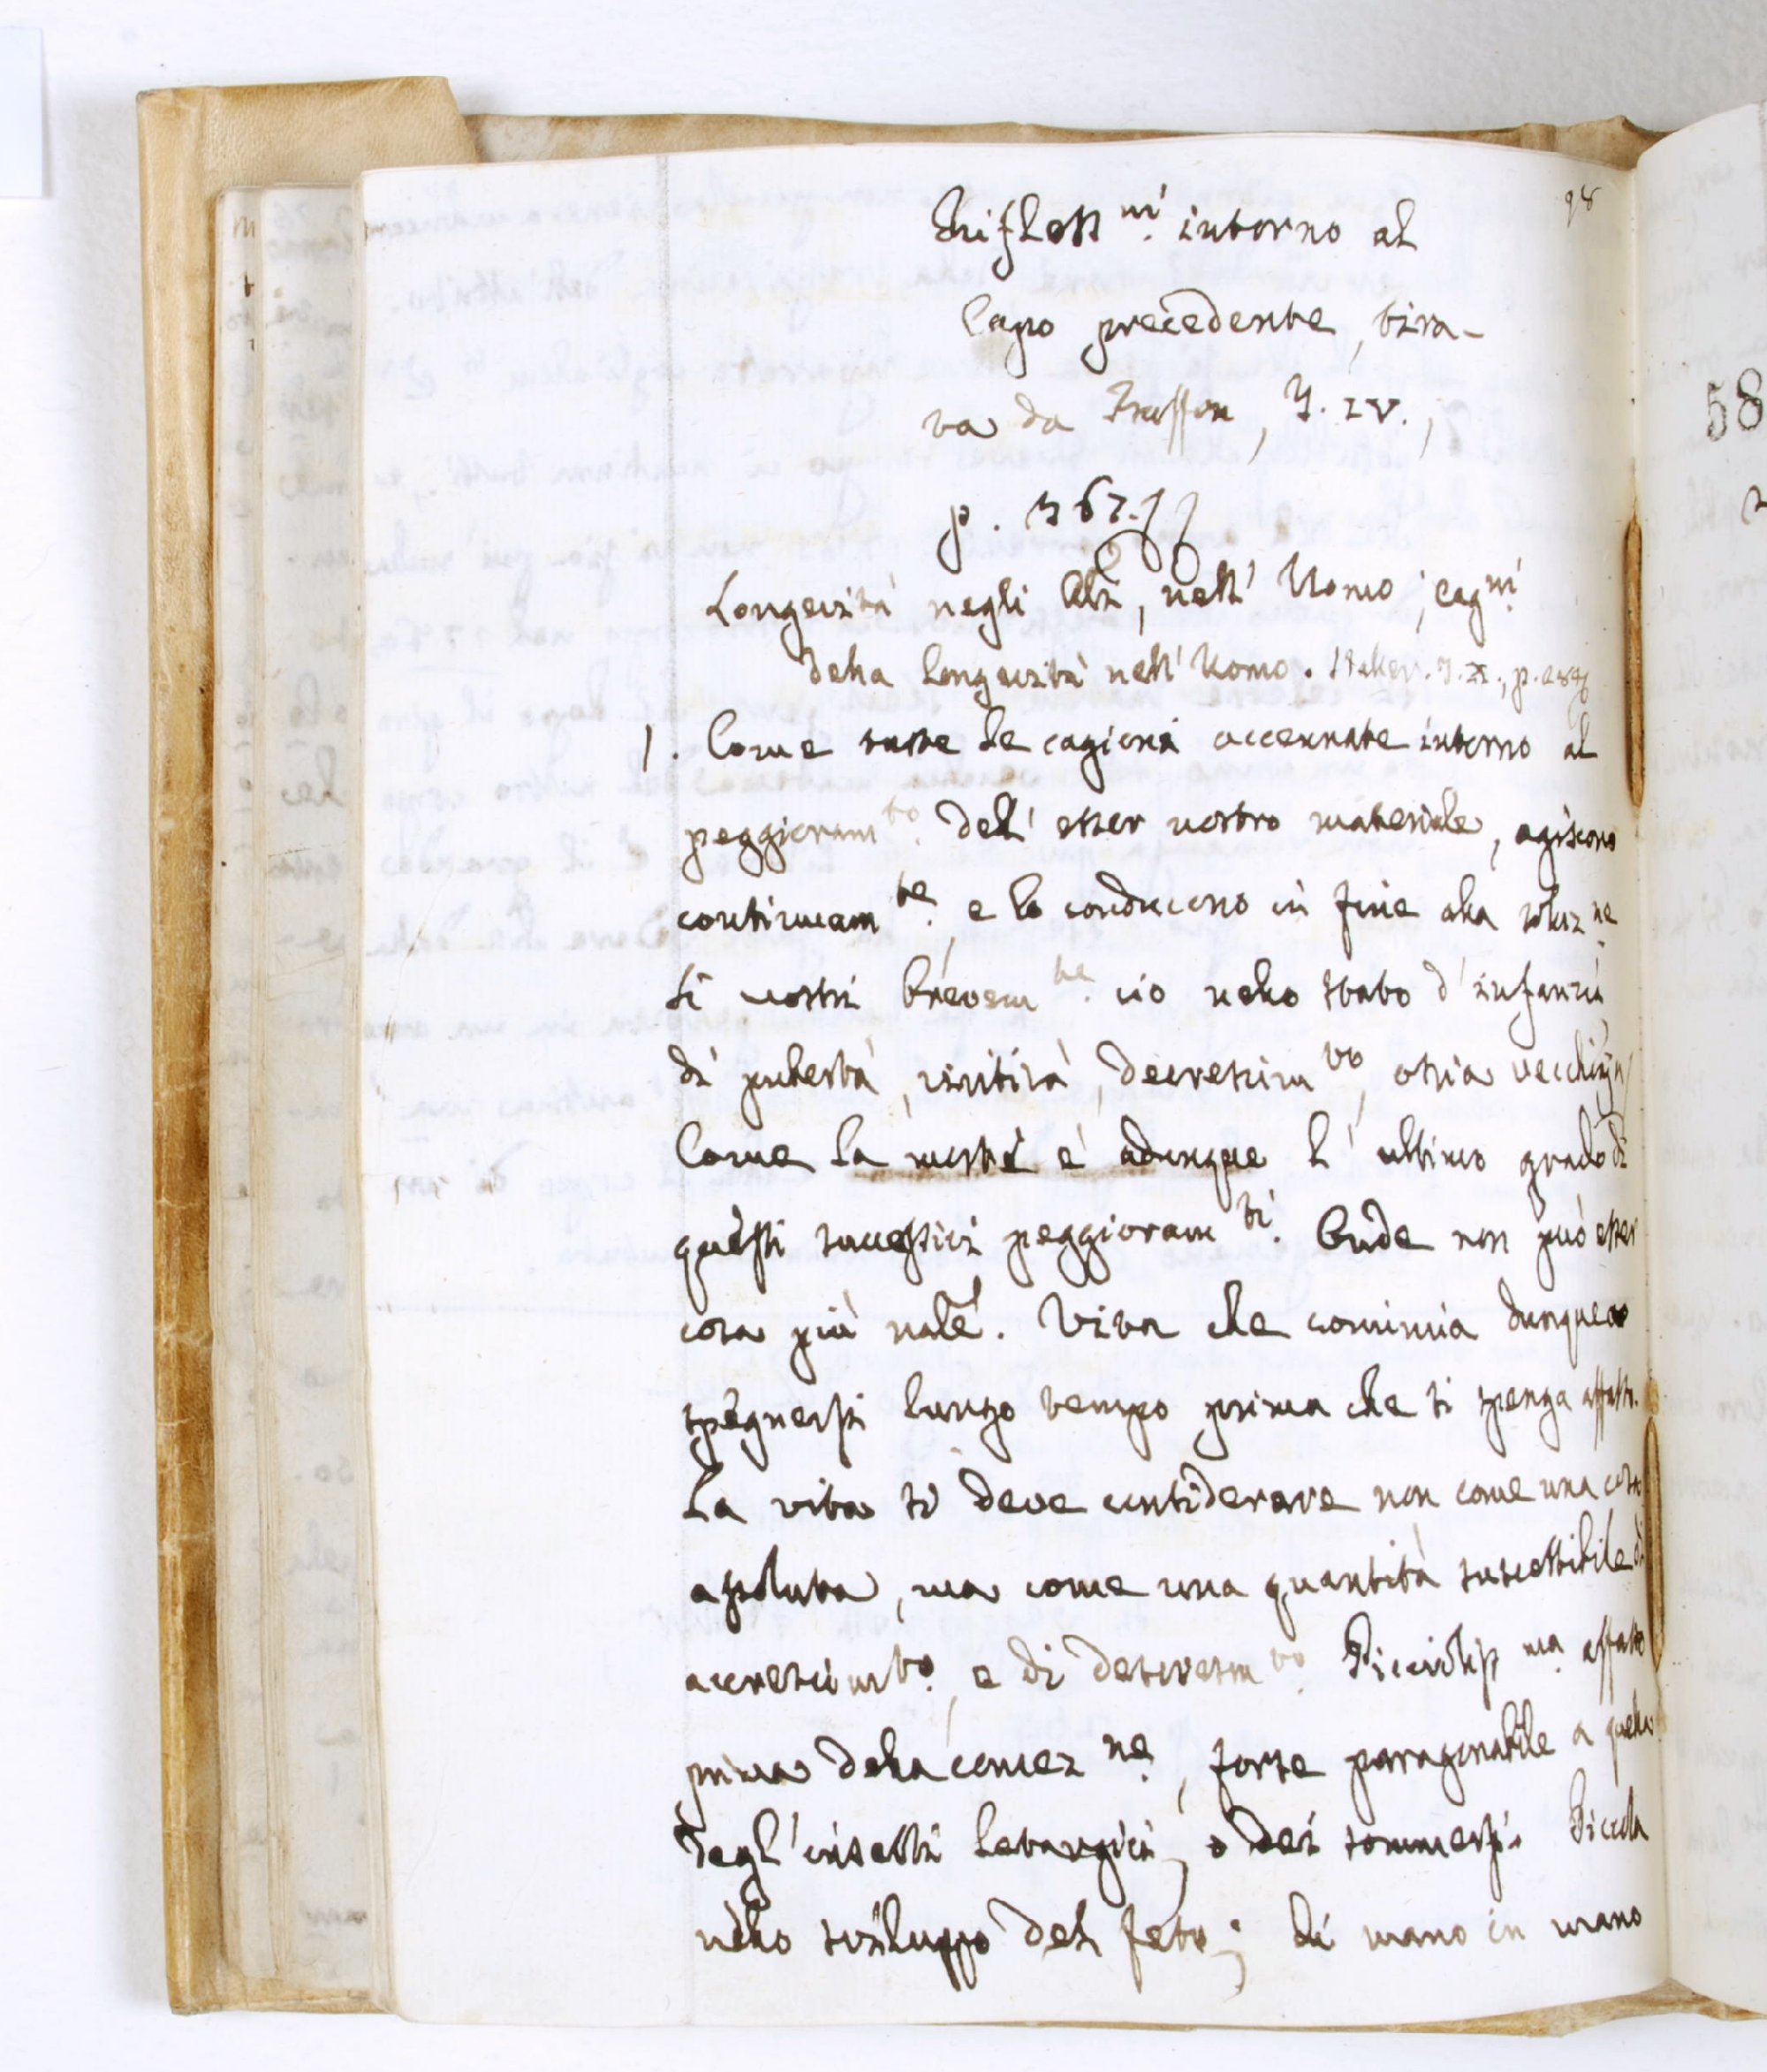 98
Rifless.ni intorno al
Capo precedente, tira-
to da Buffon, T. IV.,
p. 367.
Longevità negli Alti, nell' Uomo; cag.ni
della longevità nell' Uomo. Haller. T. XI., p.
1. Come tutte le cagioni accennate intorno al
peggioram.to dell' esser nostro materiale, agiscono
continuam.te, e lo conducono in fine alla soluz.ne
Si mostri brevem.te ciò nello stato d' infanzia
di pubertà, virilità, decrescim.to, ossia vecchiezza
Come la morte è adunque l' ultimo grado di
questi successivi peggioram.ti. Onde non può esser
cosa più nat.le. Vita che comincia dunque a
spegnersi lungo tempo prima che si spenga affatto.
La vita si deve considerare non come una cosa
assoluta, ma come una quantità suscettibile di
accrescim.to, e di descrescim.to Piccioliss.ma affatto
prima della concez.ne, forse paragonabile a quella
degl' insetti letargici, o dei sommersi. Piccola
nello sviluppo del feto; di mano in mano
58